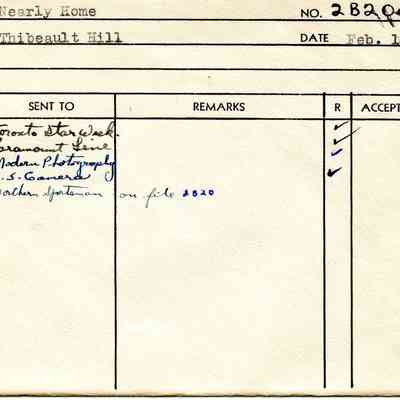 Nearly Home NO. 2820
Thibeault Hill DATE Feb. 1
SENT TO REMARKS R ACCEPT
oronto Star Week.
aramount Line ✓
Modern Photography ✓
.S. Camera ✓
orthern Sportsman on file 2820